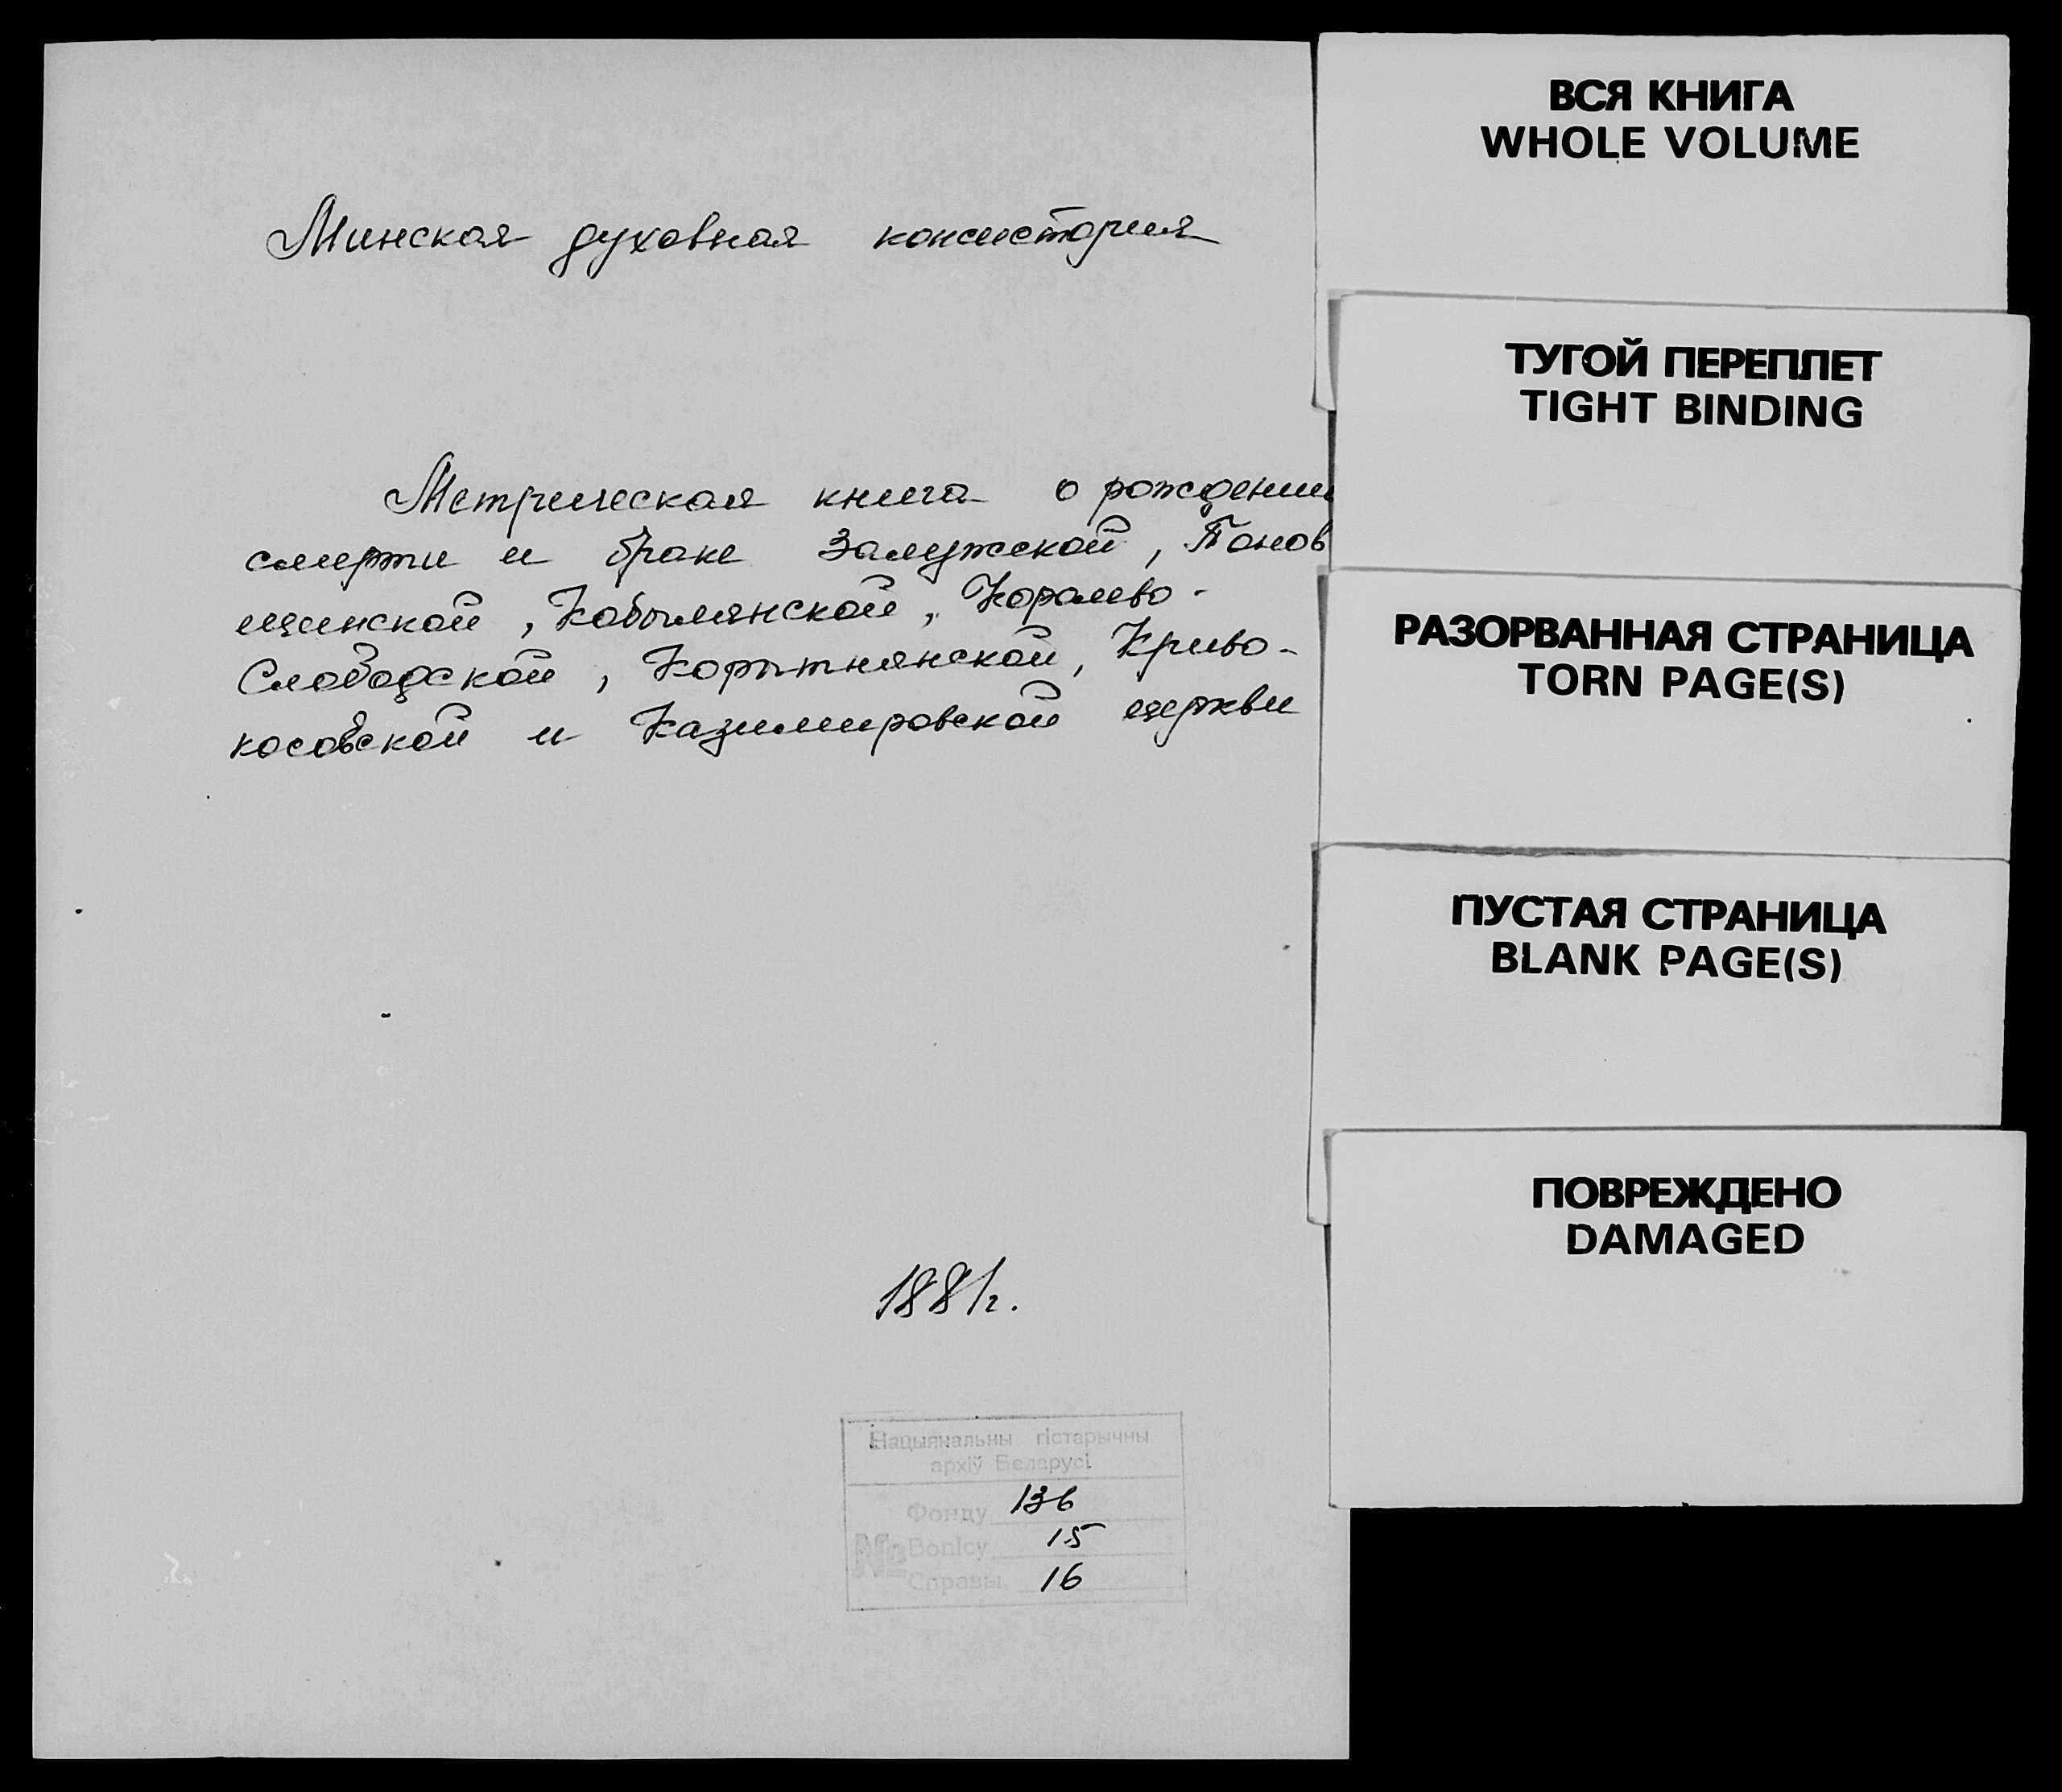 Минская духовная консистория
Метрическая книга о рождении
смерти и браке Залужской, Панов
щинской, Кобылянской, Королево-
Слободской, Корытнянской, Криво-
косовской и Казимировской церкви
1881г.
Нацыянальны гістарычны
архіў Беларусі
Фонду 136
№ Вопісу 15
Справы 16
ВСЯ КНИГА
WHOLE VOLUME
ТУГОЙ ПЕРЕПЛЕТ
TIGHT BINDING
РАЗОРВАННАЯ СТРАНИЦА
TORN PAGE(S)
ПУСТАЯ СТРАНИЦА
BLANK PAGE(S)
ПОВРЕЖДЕНО
DAMAGED